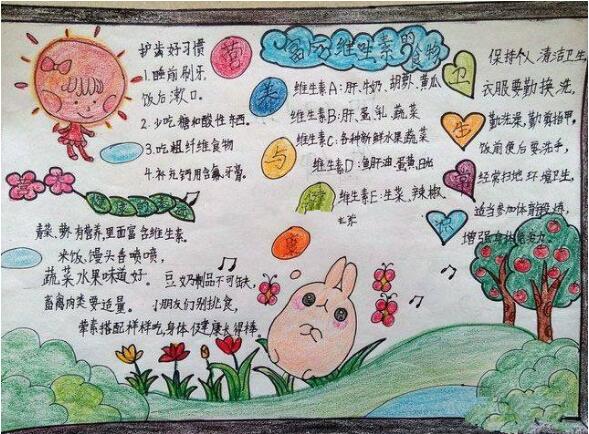 护齿好习惯
1.睡前刷牙
饭后漱口。
2.少吃糖和酸性东西。
3.吃粗纤维食物
4.补充钙用含氟牙膏。
营
养
与
康
富含维生素的食物
维生素A:肝、牛奶、胡萝、黄瓜
维生素B:肝、蛋、乳、蔬菜
维生素C:各种新鲜水果蔬菜
维生素D:鱼肝油、蛋黄、
维生素E:生菜、辣椒、
卫
生
保持个人清洁卫生,
衣服要勤换洗,
勤洗澡、勤剪指甲,
饭前便后要洗手,
经常扫地环境卫生,
适当参加体育锻炼,
增强身体
营养
健康
青菜、有营养,里面富含维生素。
米饭、馒头香喷喷,
蔬菜水果味道好。豆奶制品不可缺,
畜禽肉类要适量。小朋友们别挑食,
荤素搭配样样吃,身体健康长得棒。